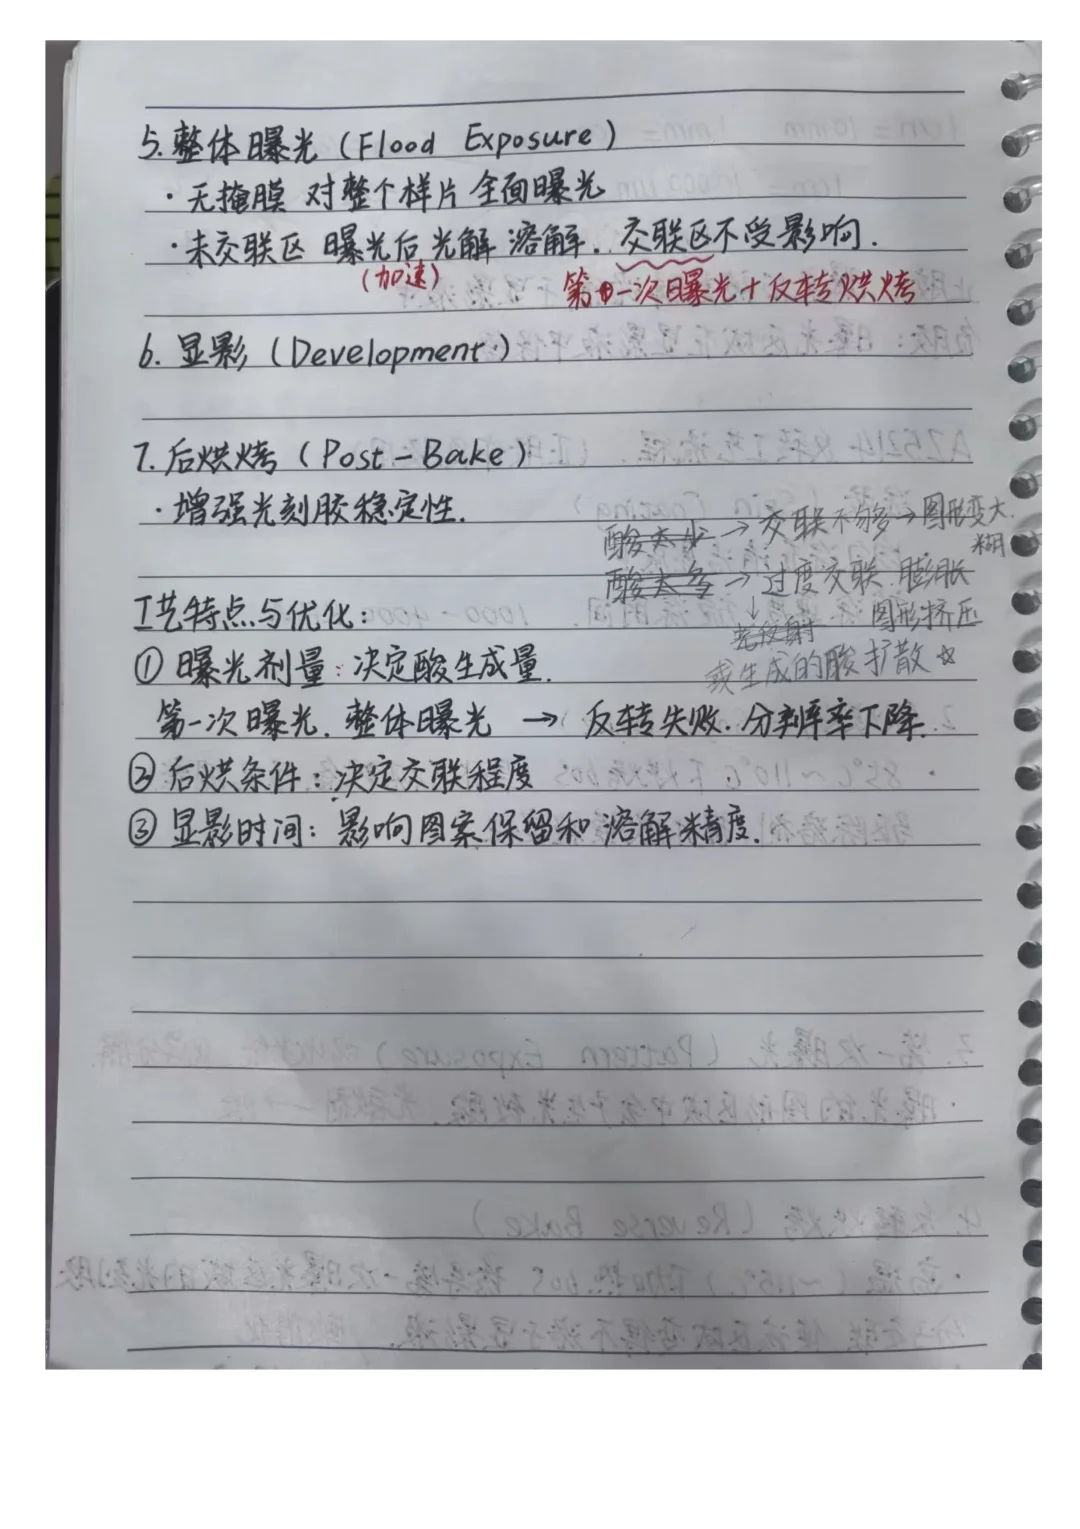 5. 整体曝光 (Flood Exposure)
· 无掩膜 对整个样片 全面曝光
· 未交联区 曝光后 光解 溶解. 交联区不受影响.
(加速) 第一次曝光 + 反转烘烤
6. 显影 (Development)
7. 后烘烤 (Post-Bake)
· 增强光刻胶稳定性.
酸太少 → 交联不够 → 图形变大.
糊
酸太多 → 过度交联. 膨胀
↓ 图形挤压
光反射
或生成的酸扩散 ☆
工艺特点与优化:
① 曝光剂量: 决定酸生成量.
第一次曝光. 整体曝光 → 反转失败. 分辨率下降.
② 后烘条件: 决定交联程度
③ 显影时间: 影响图案保留和溶解精度.